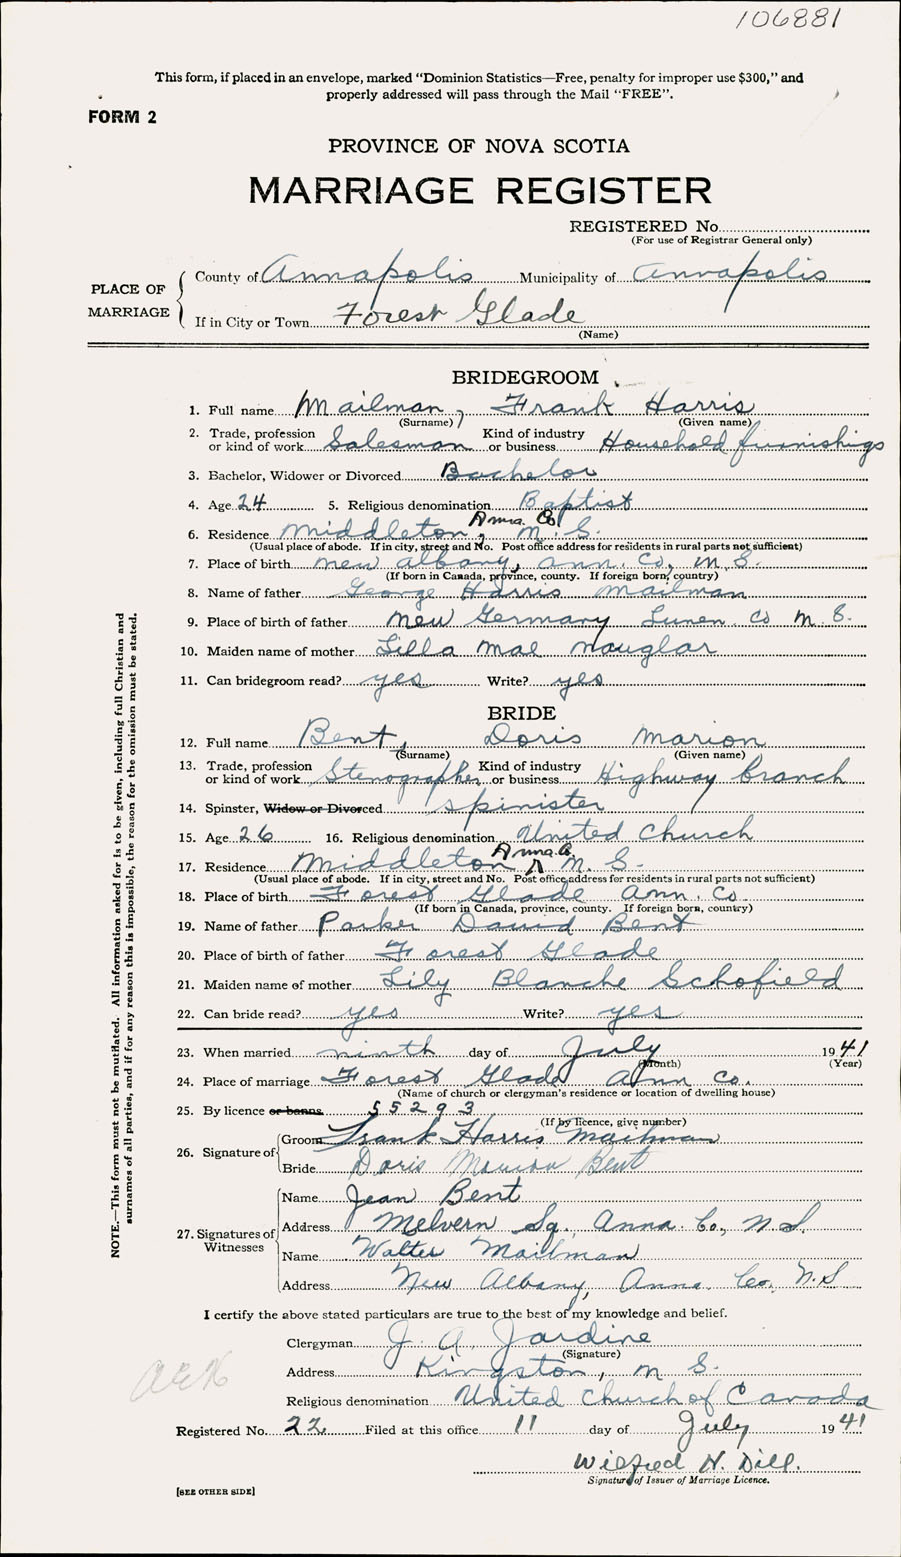 106881
This form, if placed in an envelope, marked "Dominion Statistics—Free, penalty for improper use $300," and
properly addressed will pass through the Mail "FREE".
FORM 2
PROVINCE OF NOVA SCOTIA
MARRIAGE REGISTER
REGISTERED No.
(For use of Registrar General only)
PLACE OF MARRIAGE
County of Annapolis Municipality of Annapolis
If in City or Town Forest Glade
(Name)
BRIDEGROOM
1. Full name Mailman, Frank Harris
(Surname) (Given name)
2. Trade, profession or kind of work Salesman Kind of industry or business Household furnishings
3. Bachelor, Widower or Divorced Bachelor
4. Age 24 5. Religious denomination Baptist
6. Residence Middleton, Anna. Co N. S.
(Usual place of abode. If in city, street and No. Post office address for residents in rural parts not sufficient)
7. Place of birth New Albany, Ann. Co, N. S.
(If born in Canada, province, county. If foreign born, country)
8. Name of father George Harris Mailman
9. Place of birth of father New Germany Lunen. Co N. S.
10. Maiden name of mother Lilla Mae Nauglar
11. Can bridegroom read? yes Write? yes
BRIDE
12. Full name Bent, Doris Marion
(Surname) (Given name)
13. Trade, profession or kind of work Stenographer Kind of industry or business Highway branch
14. Spinster, Widow or Divorced Spinister
15. Age 26 16. Religious denomination United Church
17. Residence Middleton Anna. Co. N. S.
(Usual place of abode. If in city, street and No. Post office address for residents in rural parts not sufficient)
18. Place of birth Forest Glade Ann. Co
(If born in Canada, province, county. If foreign born, country)
19. Name of father Parker David Bent
20. Place of birth of father Forest Glade
21. Maiden name of mother Lily Blanche Schofield
22. Can bride read? yes Write? yes
23. When married ninth day of July 1941
(Month) (Year)
24. Place of marriage Forest Glade Ann Co.
(Name of church or clergyman's residence or location of dwelling house)
25. By licence or banns 55293
(If by licence, give number)
26. Signature of
Groom Frank Harris Mailman
Bride Doris Marion Bent
27. Signatures of Witnesses
Name Jean Bent
Address Melvern Sq. Anna. Co., N.S.
Name Walter Mailman
Address New Albany, Anna. Co. N.S
I certify the above stated particulars are true to the best of my knowledge and belief.
Clergyman J. A. Jardine
(Signature)
Address Kingston, N. S.
Religious denomination United Church of Canada
Registered No. 22 Filed at this office 11 day of July 1941
Wilfred H. Dill.
Signature of Issuer of Marriage Licence.
[SEE OTHER SIDE]
NOTE.—This form must not be mutilated. All information asked for is to be given, including full Christian and
surnames of all parties, and if for any reason this is impossible, the reason for the omission must be stated.